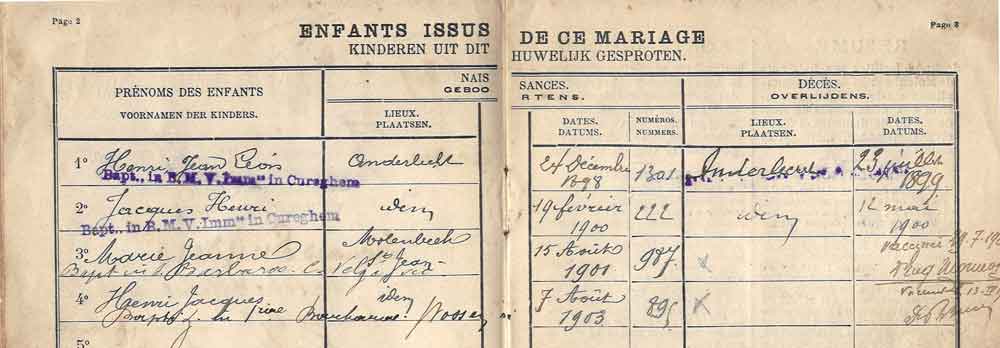 Page 2
Page 3
ENFANTS ISSUS DE CE MARIAGE
KINDEREN UIT DIT HUWELIJK GESPROTEN.
PRÉNOMS DES ENFANTS
VOORNAMEN DER KINDERS.
NAISSANCES.
GEBOORTENS.
DÉCÈS.
OVERLIJDENS.
LIEUX.
PLAATSEN.
DATES.
DATUMS.
NUMÉROS.
NUMMERS.
LIEUX.
PLAATSEN.
DATES.
DATUMS.
1° Henri Jean Léon Anderlecht 24 Décembre 1898 1301 Anderlecht 23 1899
Bapt., in B.M.V. Imm" in Cureghem
2° Jacques Henri idem 19 fevrier 1900 222 idem 12 mai 1900
Bapt., in B.M.V. Imm" in Cureghem
3° Marie Jeanne Molenbeek St Jean 15 Août 1901 987 x
Bapt in
4° Henri Jacques idem 7 Août 1903 895 x
5°